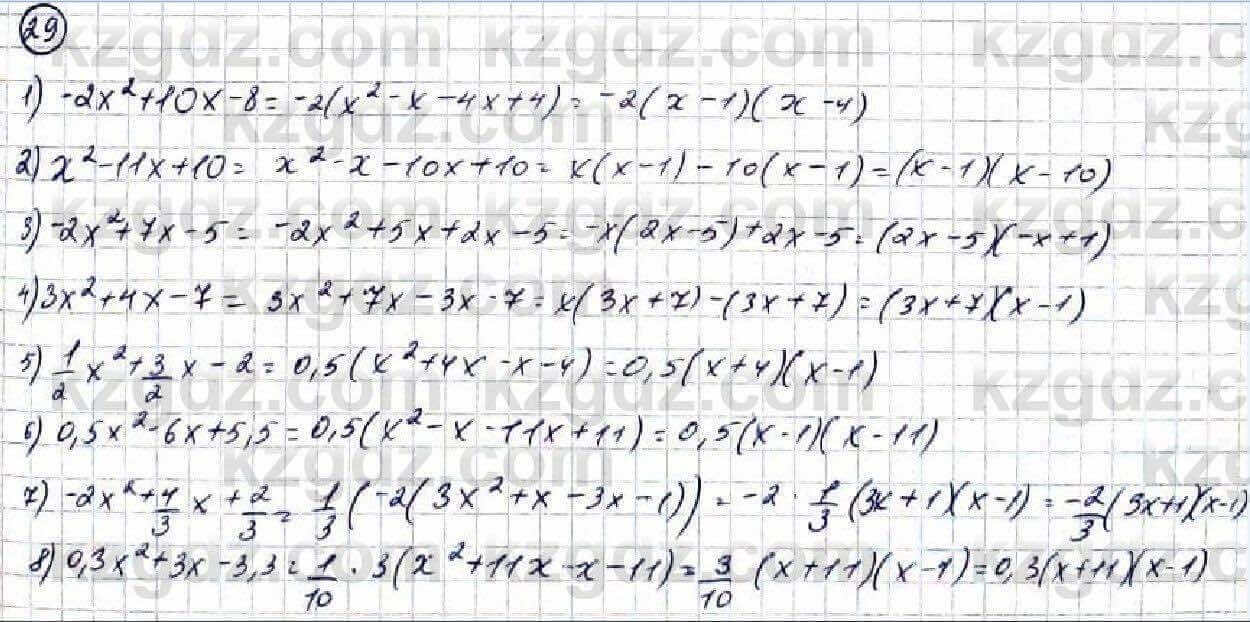 29
1) -2x² + 10x - 8 = -2(x² - x - 4x + 4) = -2(x - 1)(x - 4)
2) x² - 11x + 10 = x² - x - 10x + 10 = x(x - 1) - 10(x - 1) = (x - 1)(x - 10)
3) -2x² + 7x - 5 = -2x² + 5x + 2x - 5 = -x(2x - 5) + 2x - 5 = (2x - 5)(-x + 1)
4) 3x² + 4x - 7 = 3x² + 7x - 3x - 7 = x(3x + 7) - (3x + 7) = (3x + 7)(x - 1)
5) 1/2 x² + 3/2 x - 2 = 0,5(x² + 4x - x - 4) = 0,5(x + 4)(x - 1)
6) 0,5x² - 6x + 5,5 = 0,5(x² - x - 11x + 11) = 0,5(x - 1)(x - 11)
7) -2x² + 4/3 x + 2/3 = 1/3 (-2(3x² + x - 3x - 1)) = -2 · 1/3 (3x + 1)(x - 1) = -2/3 (3x + 1)(x - 1)
8) 0,3x² + 3x - 3,3 = 1/10 · 3(x² + 11x - x - 11) = 3/10 (x + 11)(x - 1) = 0,3(x + 11)(x - 1)
kzgdz.com